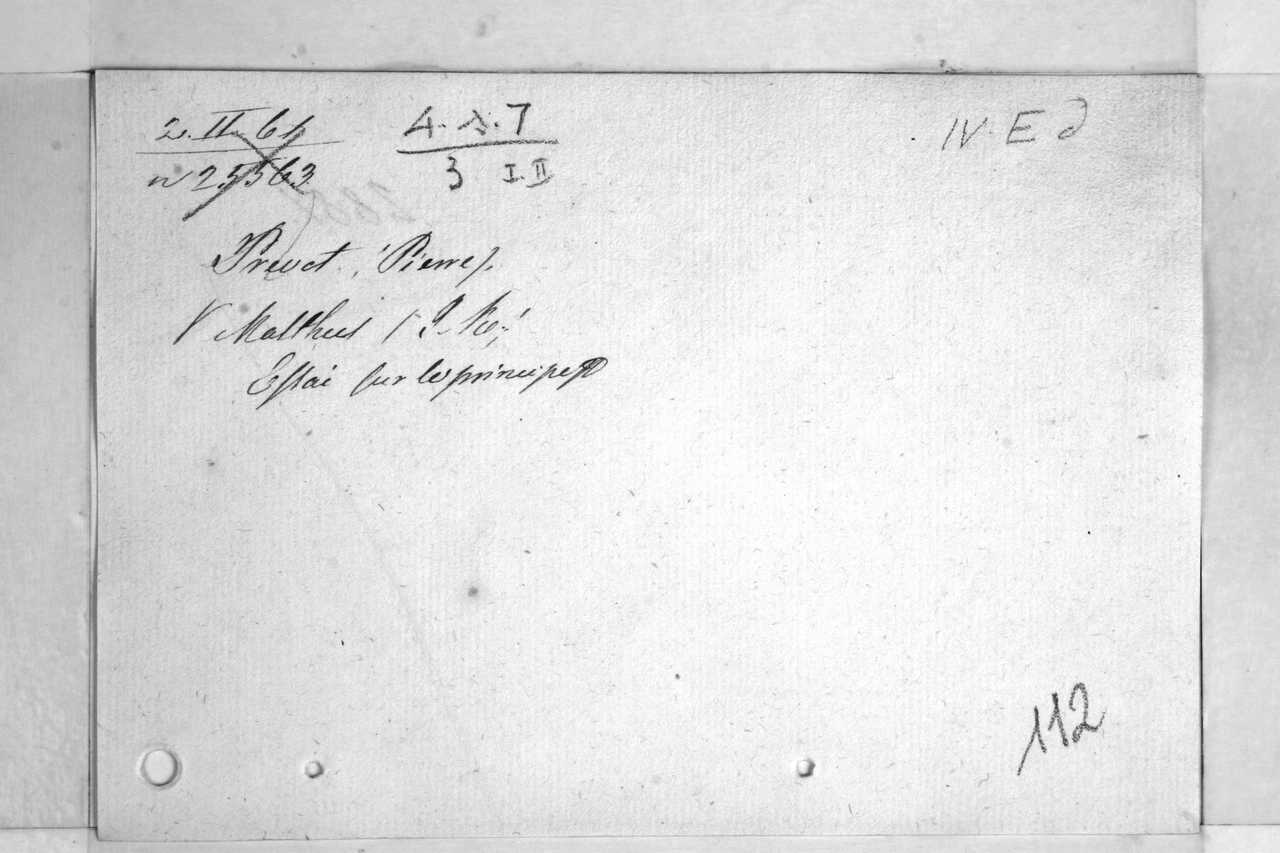 2. II. 61
n 25563
4. λ. 7
3 I. II
IV. E d
Prevot, (Pierre).
V Malthus (J. R.)
Essai sur les principes
112